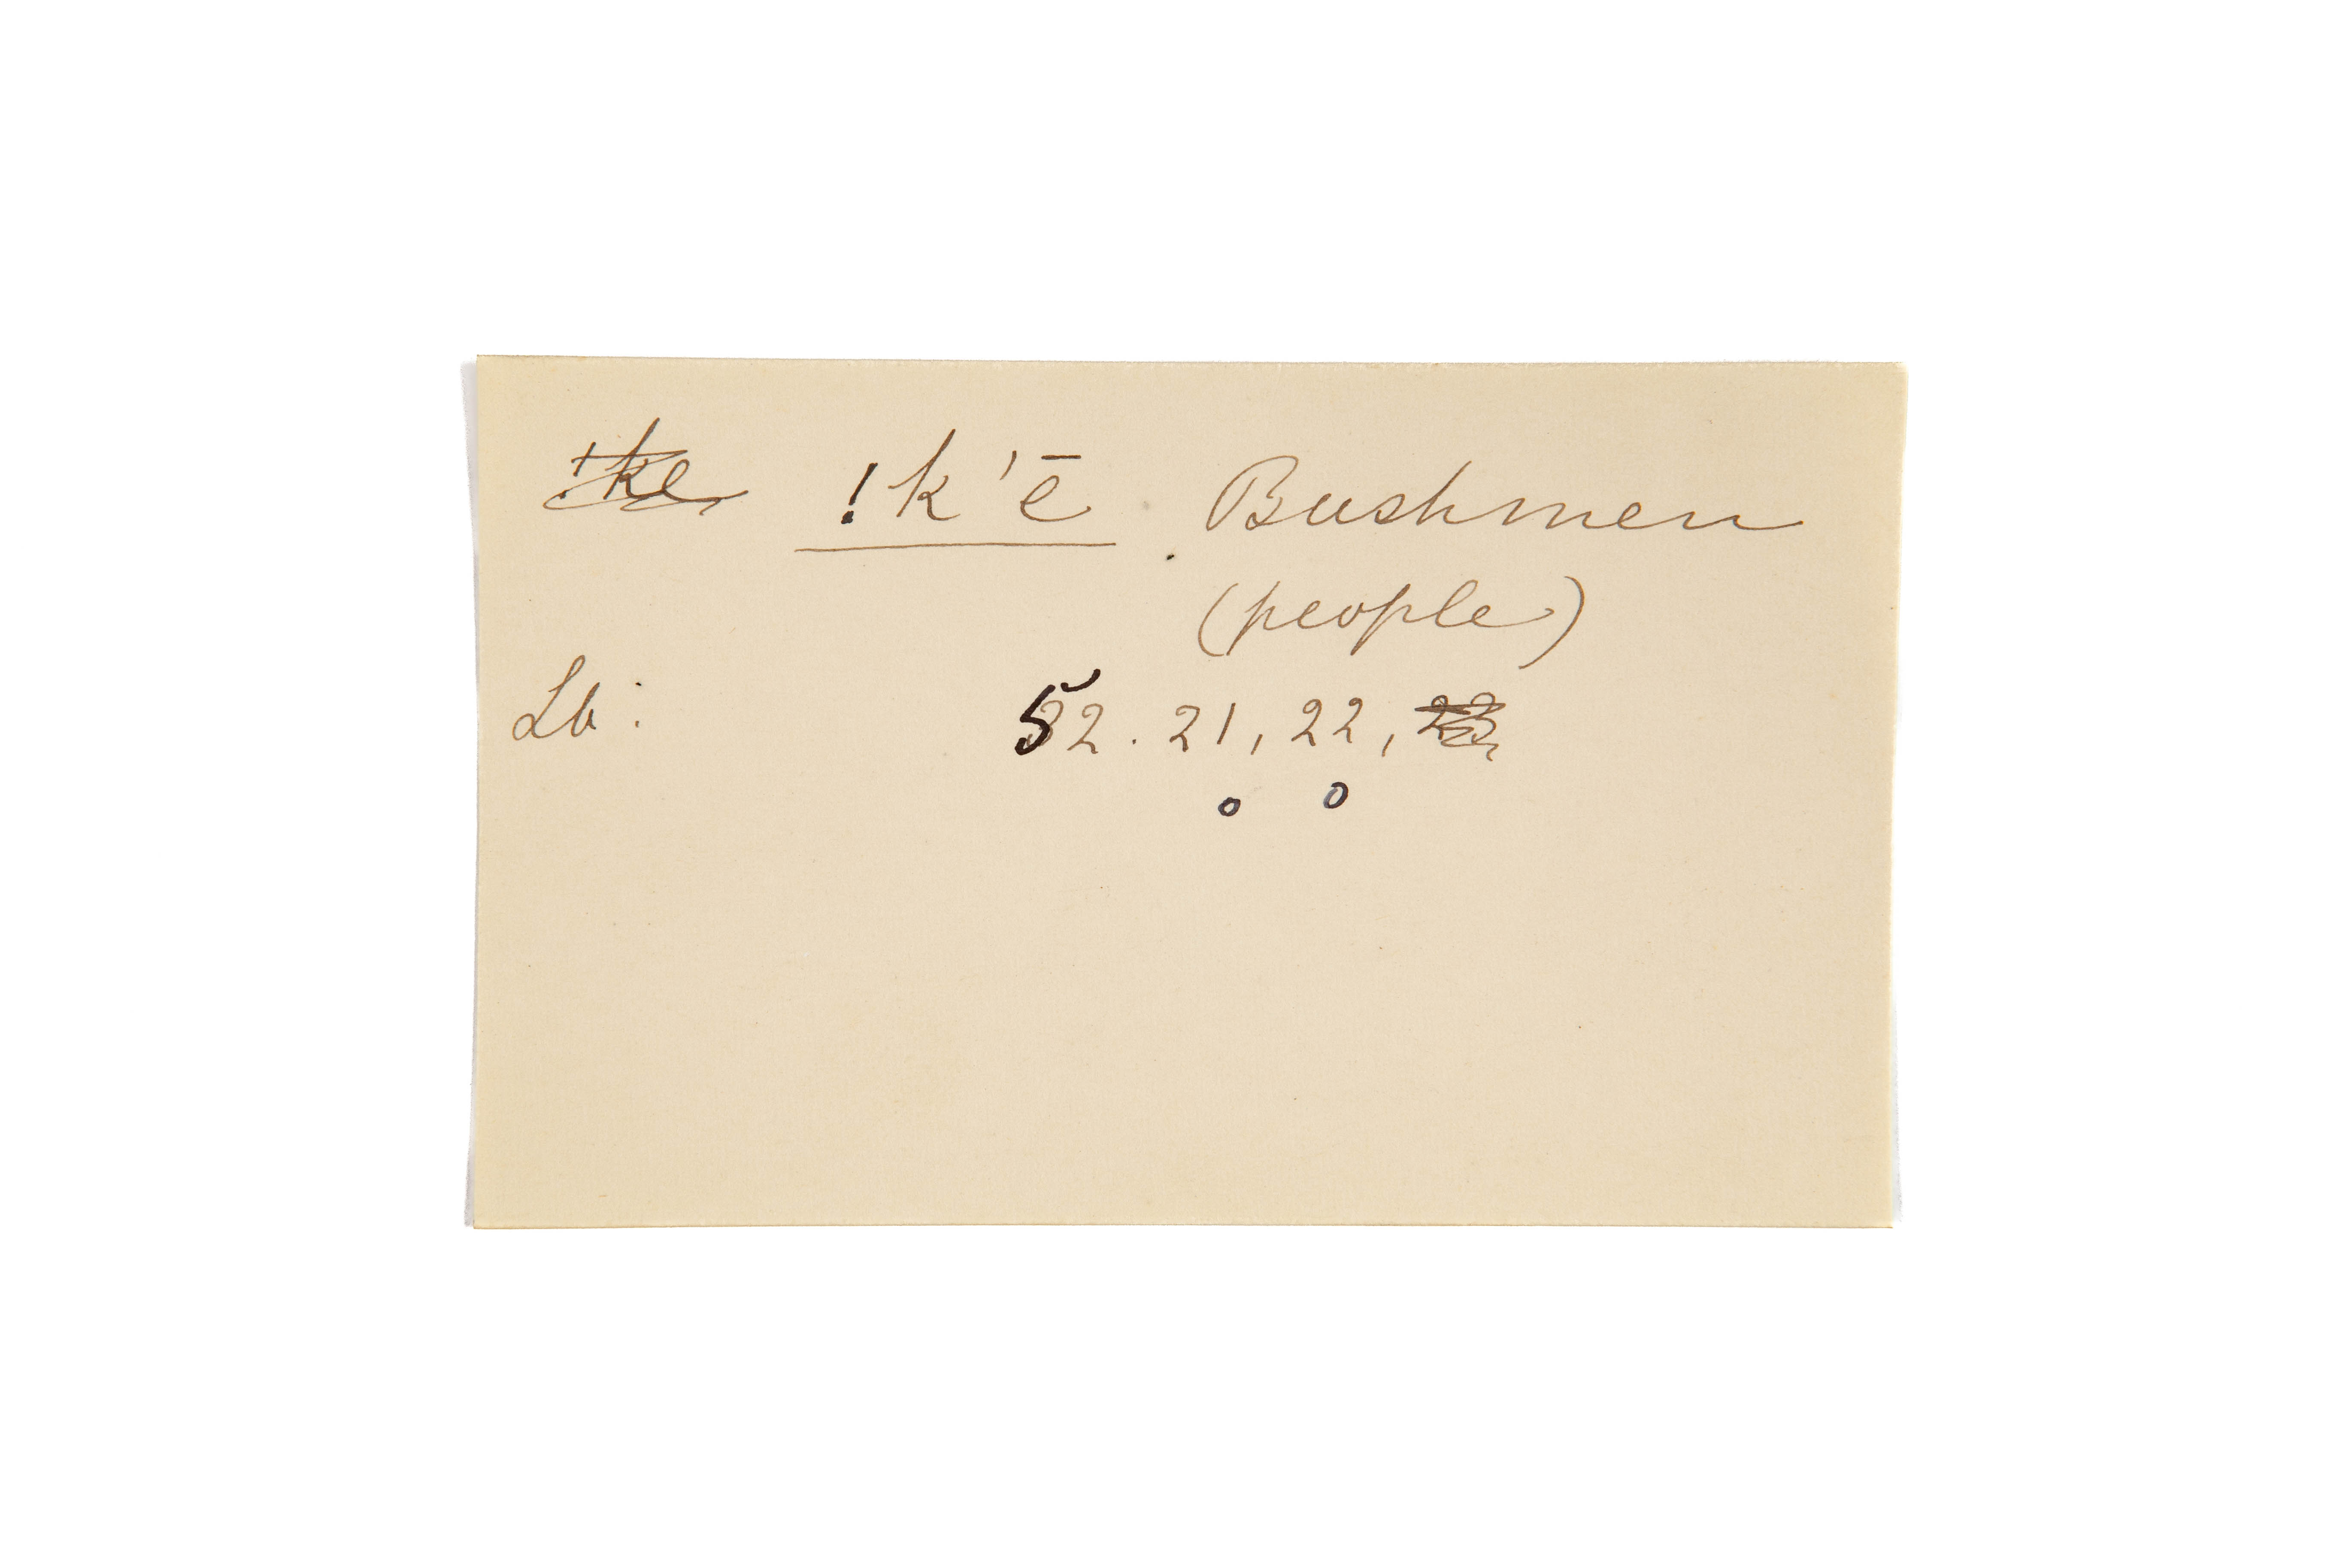 !k'ē . Bushmen
(people)
Lb : 52. 21, 22,
o o